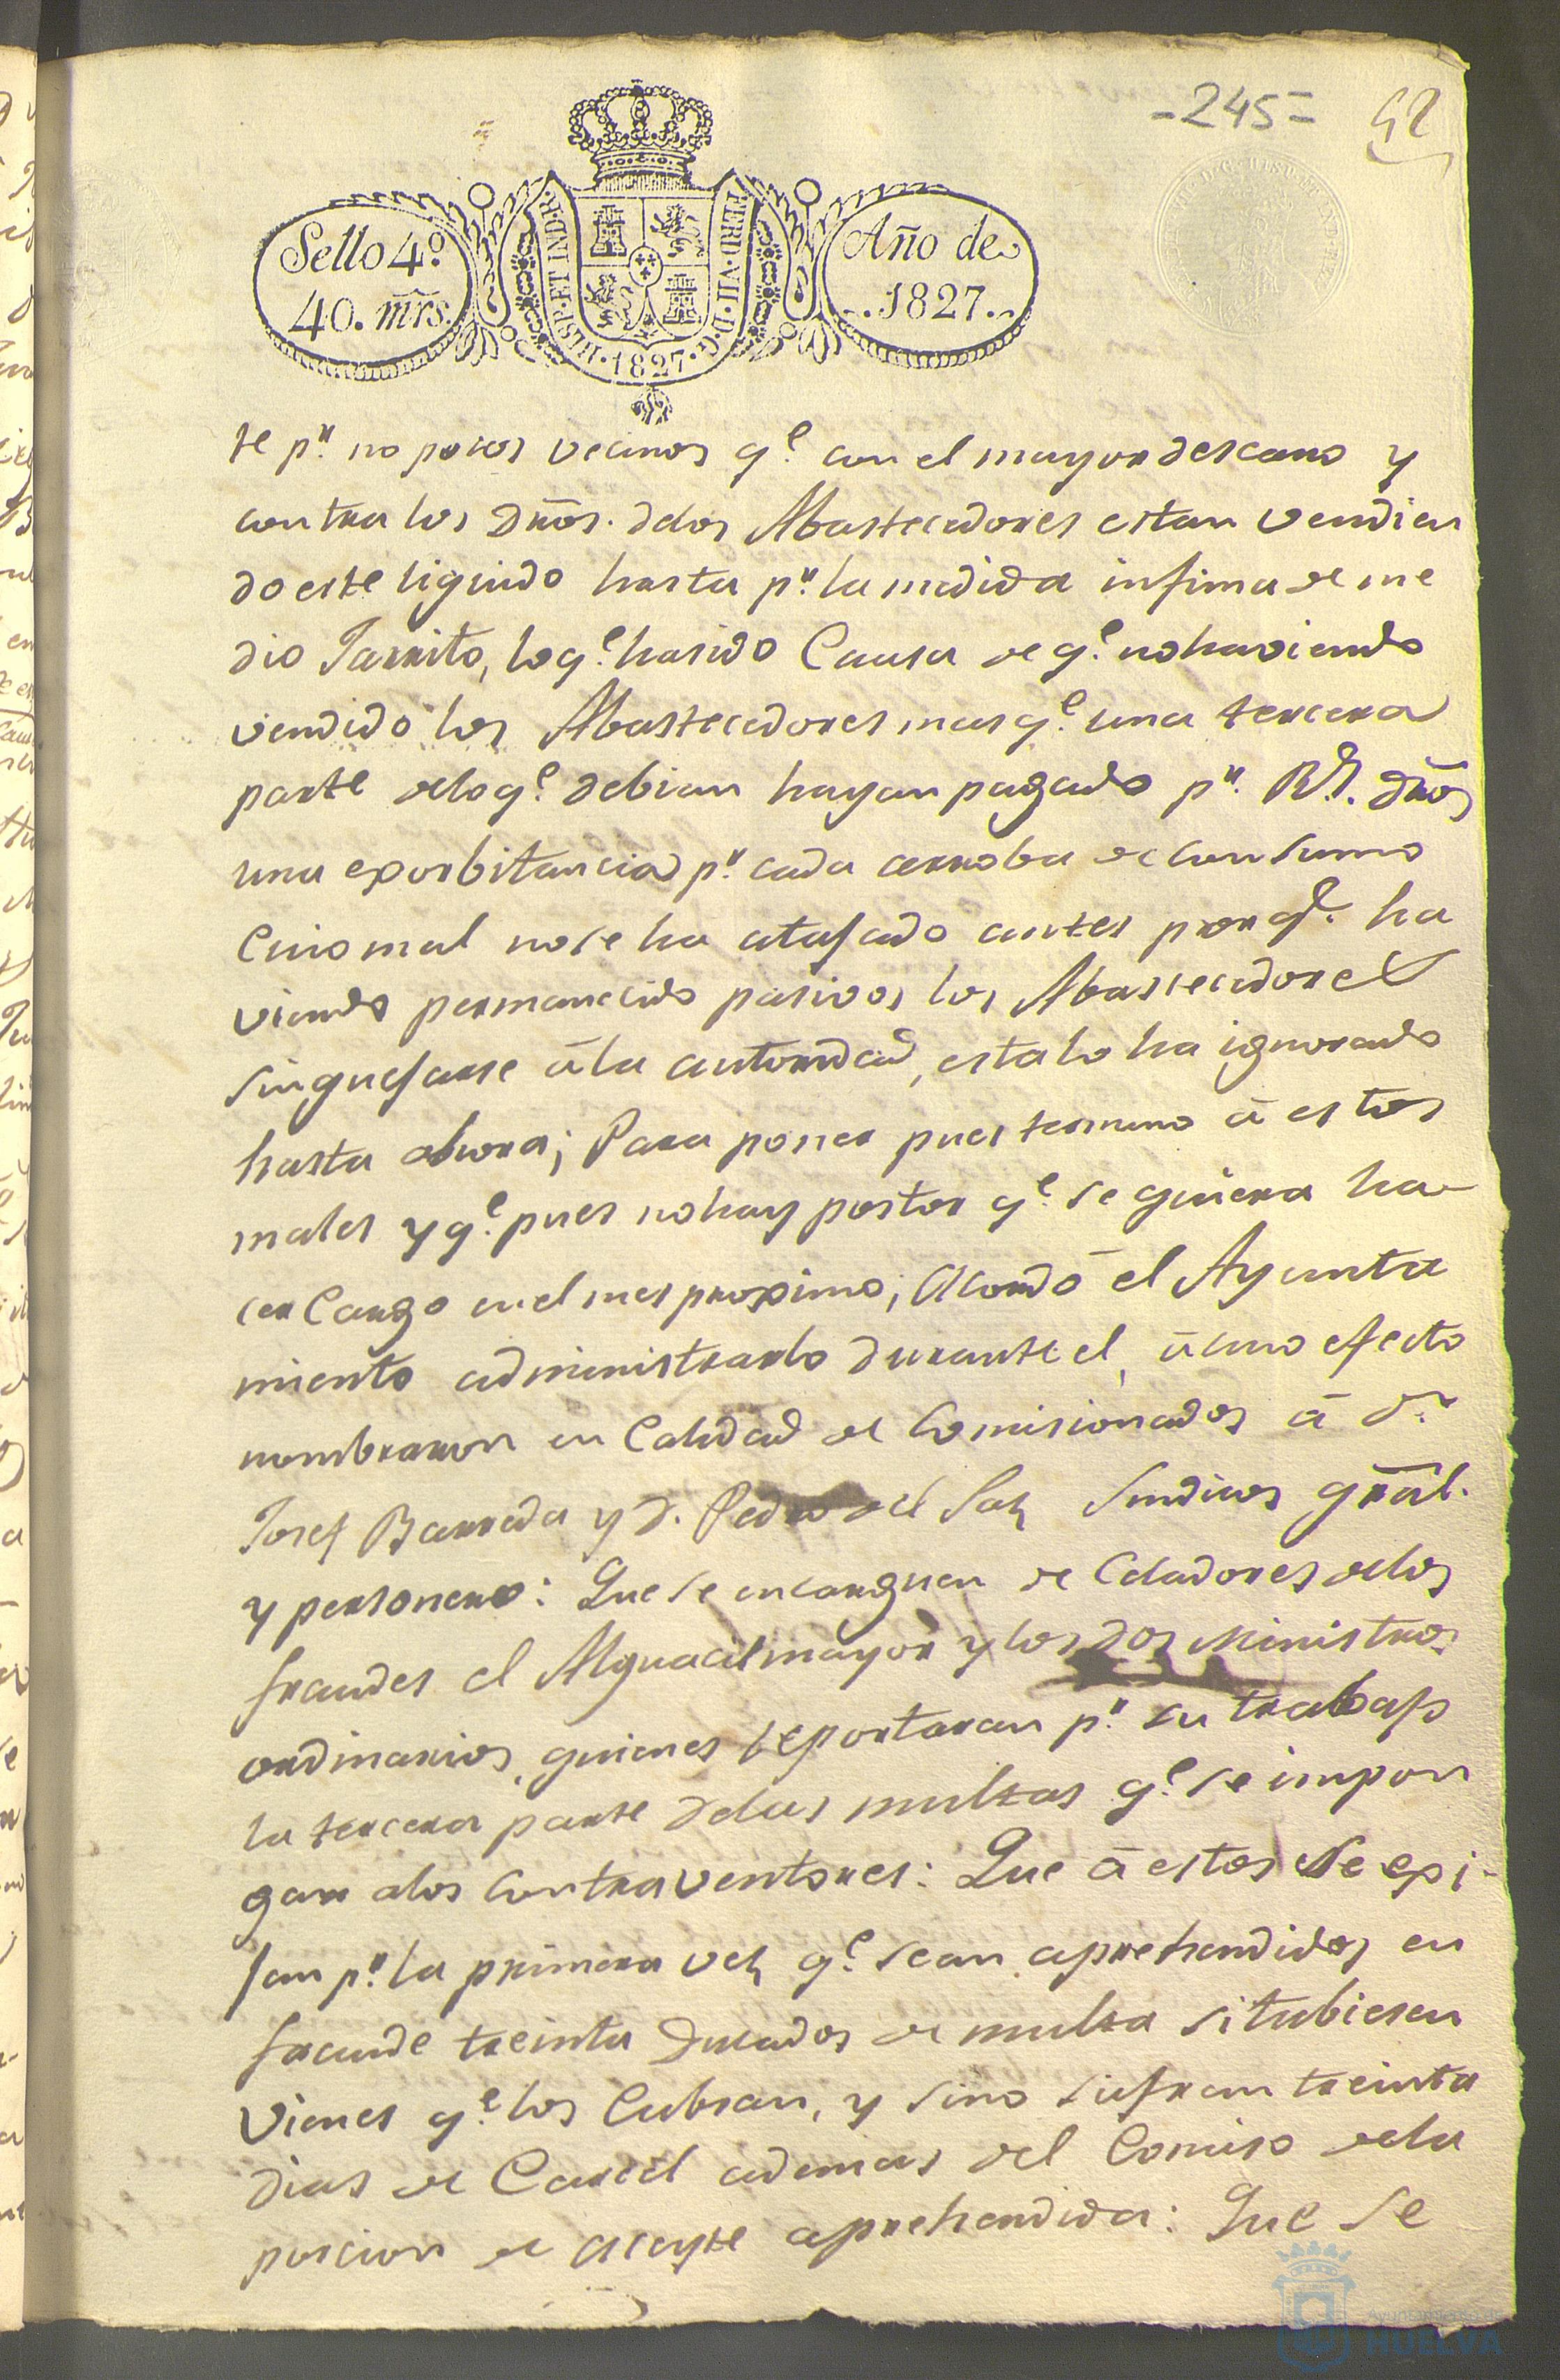 -245-
42
Sello 4.º
40. mrs.
HISP. ET IND. R.
FERD. VII. D. G.
1827
Año de
1827
te pr. no pocos vecinos q.e con el mayor descaro y
contra los dros. delos Abastecedores estan vendien
do este liquido hasta pr. la medida infima de me
dio Jarrito, lo q.e ha sido Causa de q.e no haviendo
vendido los Abastecedores mas q.e una tercera
parte delo q.e debian hayan pagado pr. Rs. dros
una exorbitancia pr. cada arroba de consumo
Cuio mal no se ha atajado antes porq.e ha
viendo permanecido pasivos los Abastecedores
sin quejarse á la autoridad, esta lo ha ignorado
hasta ahora; Para poner pues termino á estos
males y q.e pues no hay postor q.e se quiera ha-
cer Cargo en el mes proximo; Acordó el Ayunta
miento administrarlo durante el, á cuio efecto
nombraron en Calidad de Comisionados á Dn.
Josef Barreda y D. Pedro del Saz Sindicos gral.
y personero: Que se encarguen de Celadores delos
fraudes el Alguacil mayor y los dos Ministros
ordinarios, quienes reportaran pr. su trabajo
la tercera parte delas multas q.e se impon
gan alos Contraventores: Que á estos se exi-
jan pr. la primera vez q.e sean aprehendidos en
fraude treinta Ducados de multa si tubiesen
Vienes q.e los Cubran, y sino sufran treinta
dias de Carcel ademas del Comiso dela
porcion de aceyte aprehendida: Que se
Ayuntamiento de
HUELVA